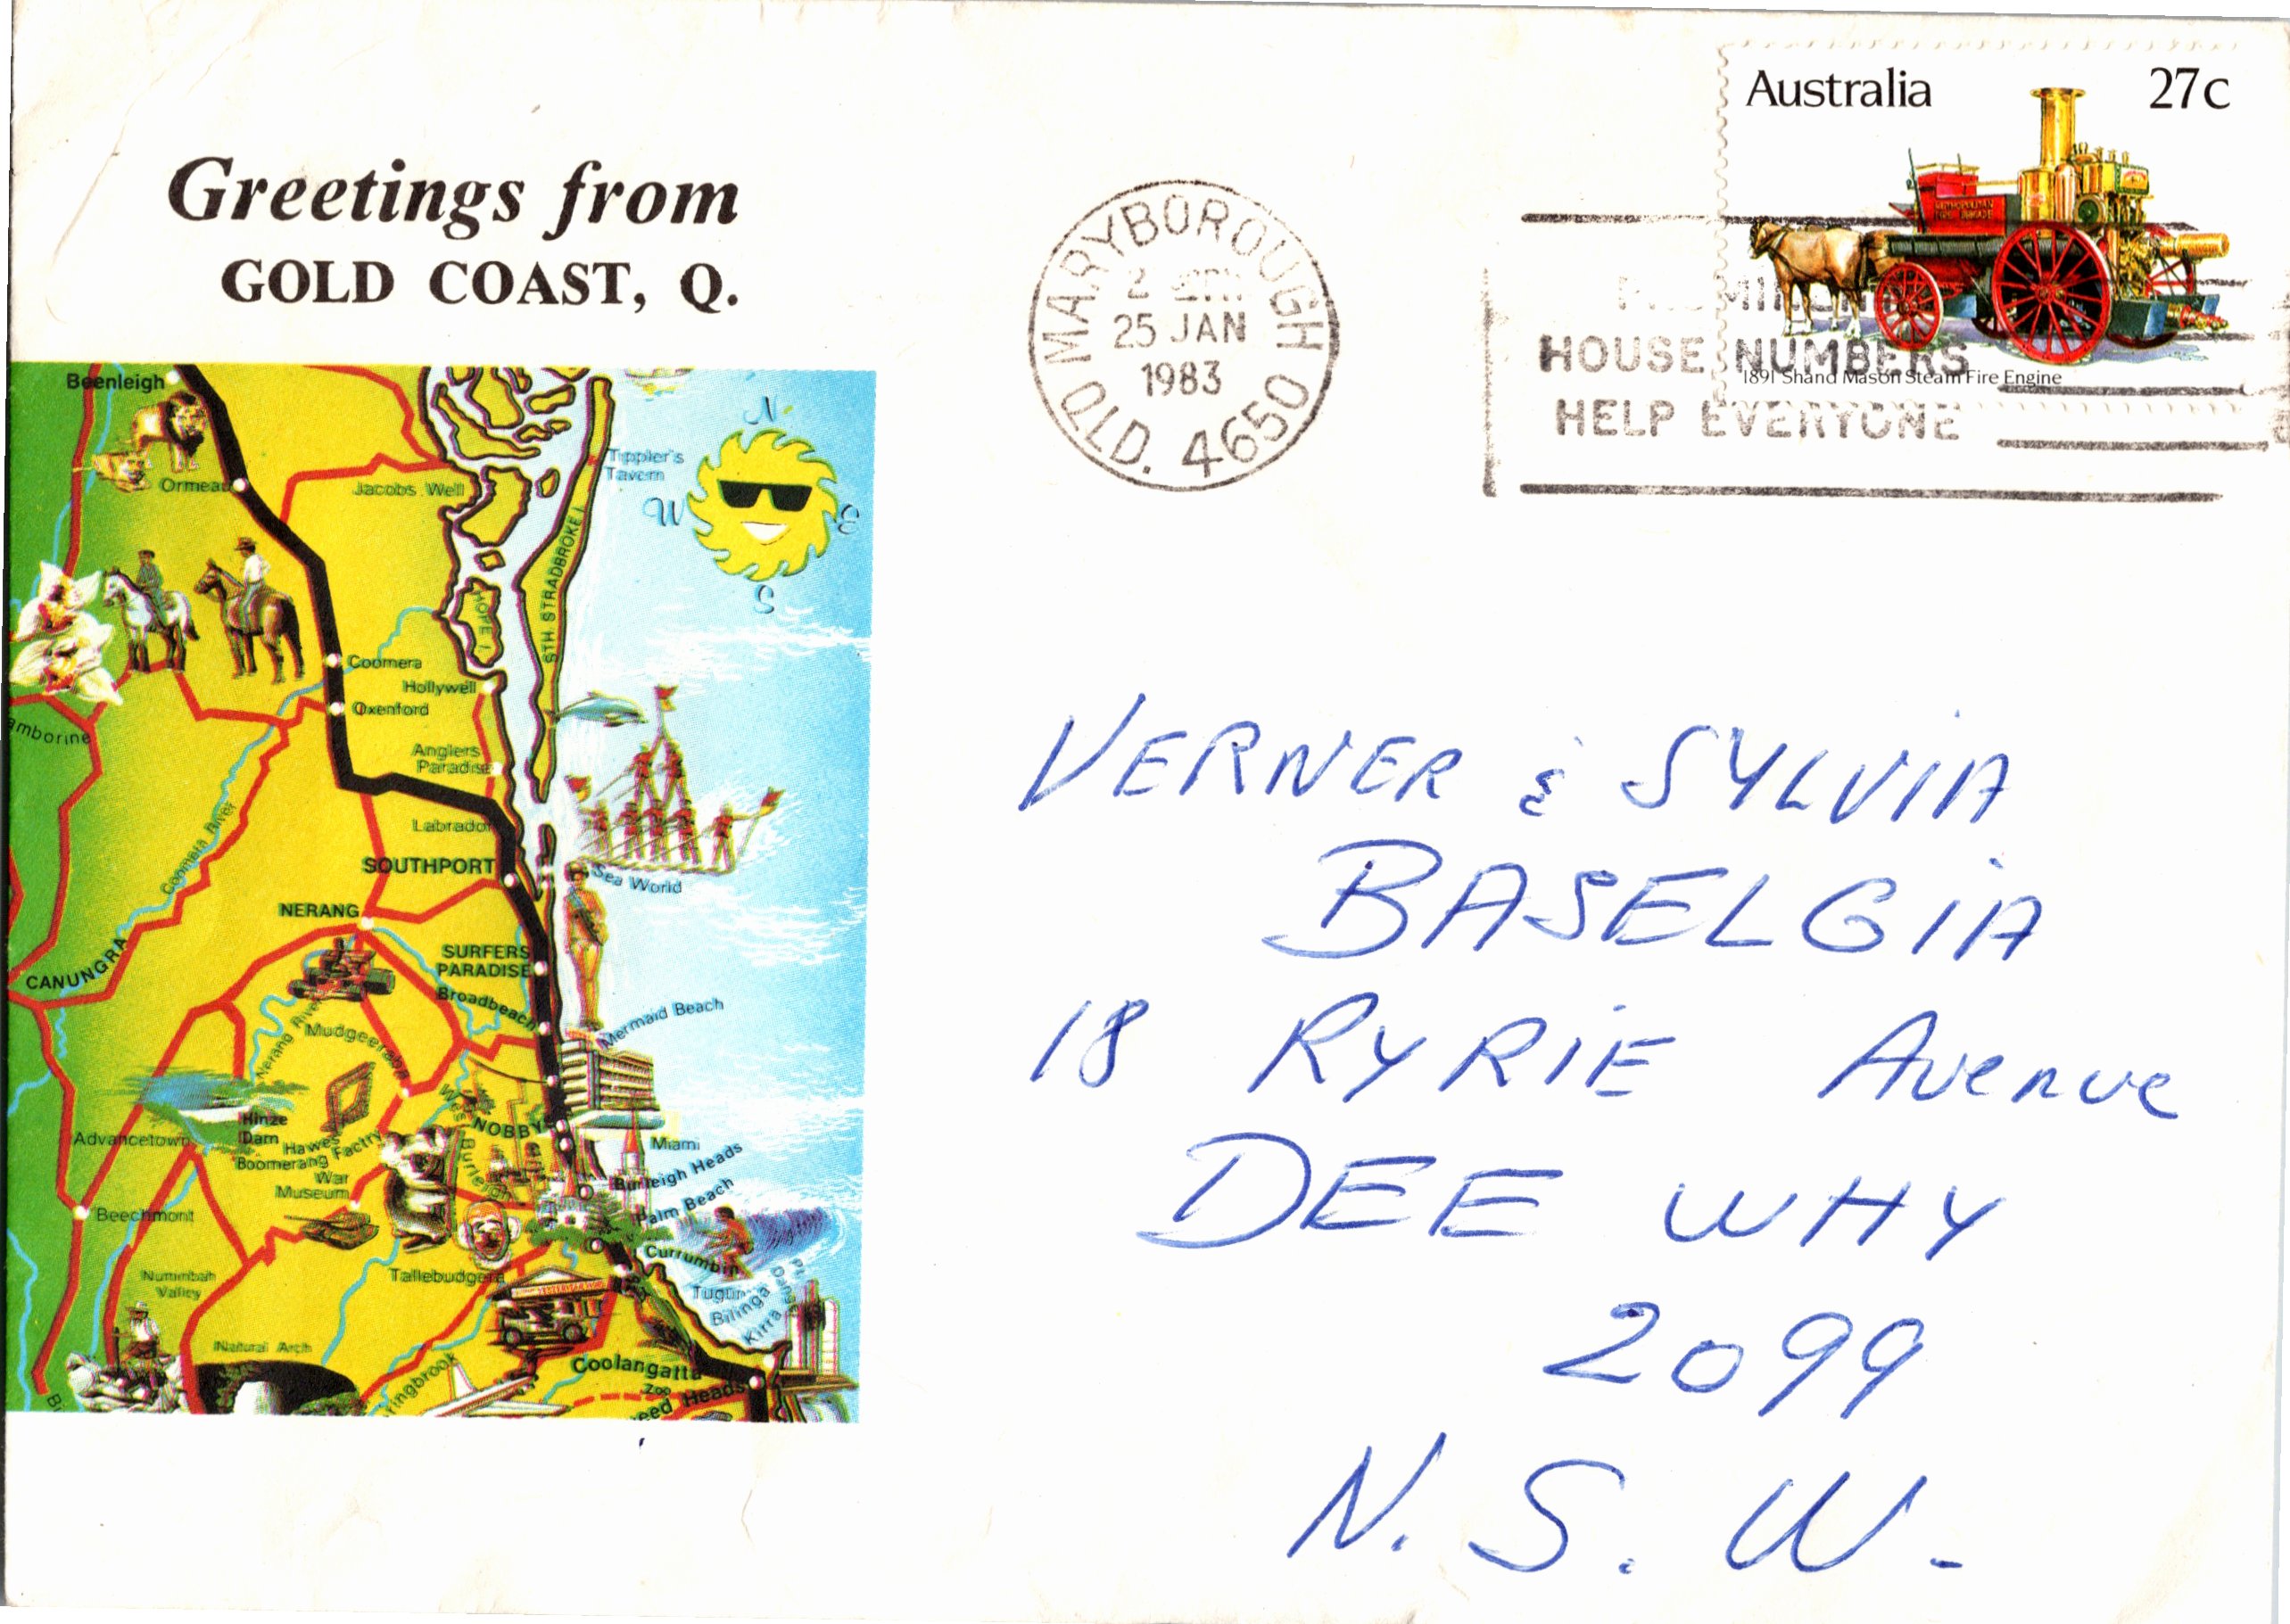 Greetings from
GOLD COAST, Q.
Australia 27c
METROPOLITAN
FIRE BRIGADE
1891 Shand Mason Steam Fire Engine
MARYBOROUGH
2
25 JAN
1983
QLD. 4650
HOUSE NUMBERS
HELP EVERYONE
VERNER & SYLVIA
BASELGIA
18 RYRIE Avenue
DEE WHY
2099
N. S. W.
Beenleigh
Ormeau
Jacobs Well
Tippler's
Tavern
N
W
E
S
STH. STRADBROKE I.
HOPE I.
Coomera
Hollywell
Oxenford
amborine
Anglers
Paradise
Coomera River
Labrador
SOUTHPORT
Sea World
NERANG
CANUNGRA
SURFERS
PARADISE
Broadbeach
Nerang River
Mudgeeraba
Mermaid Beach
Hinze
Dam
Advancetown
Hawes
Boomerang Factry
War
Museum
West
Burleigh
NOBBY
Miami
Burleigh Heads
Palm Beach
Beechmont
Currumbin
Tallebudgera
Tugun
Bilinga
Kirra
Numinbah
Valley
Natural Arch
ringbrook
Coolangatta
Zoo
eed Heads